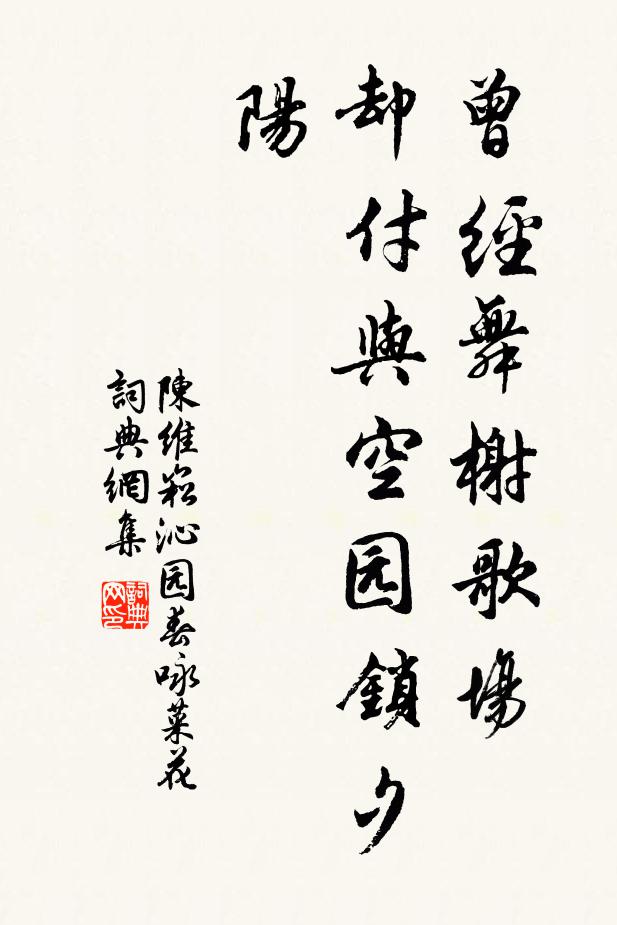 曾經舞榭歌場
却付與空园鎖夕
陽
陳維崧沁园春咏菜花
詞典網集
詞典网印